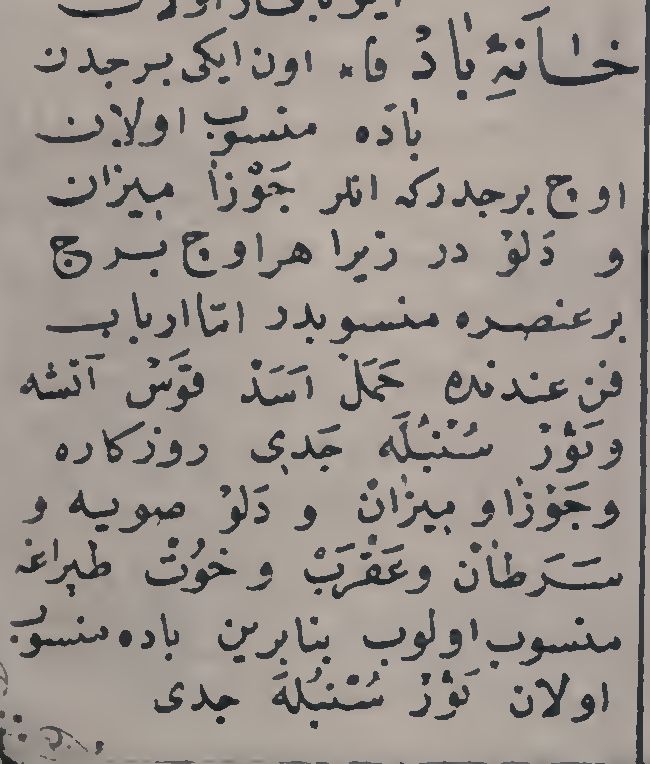 خَانَۀِ بَادْ فا٭ اون ايكى برجدن
بَادَه منسوب اولان
اوج برجدركه انلر جَوْزَا ميزان
و دَلوْ در زيرا هر اوج برج
بر عنصره منسوبدر امّا ارباب
فن عندنده حَمَلْ اَسَدْ قَوَسْ آتشه
وثَوْرْ سُنْبُلَه جَدى روزكاره
وجَوْزَا و ميزان و دَلوْ صويه و
سَرَطانْ وعَقْرَبْ وحُوتْ طپراغه
منسوب اولوب بنابرين باده منسوب
اولان ثَوْرْ سُنْبُلَه جدى